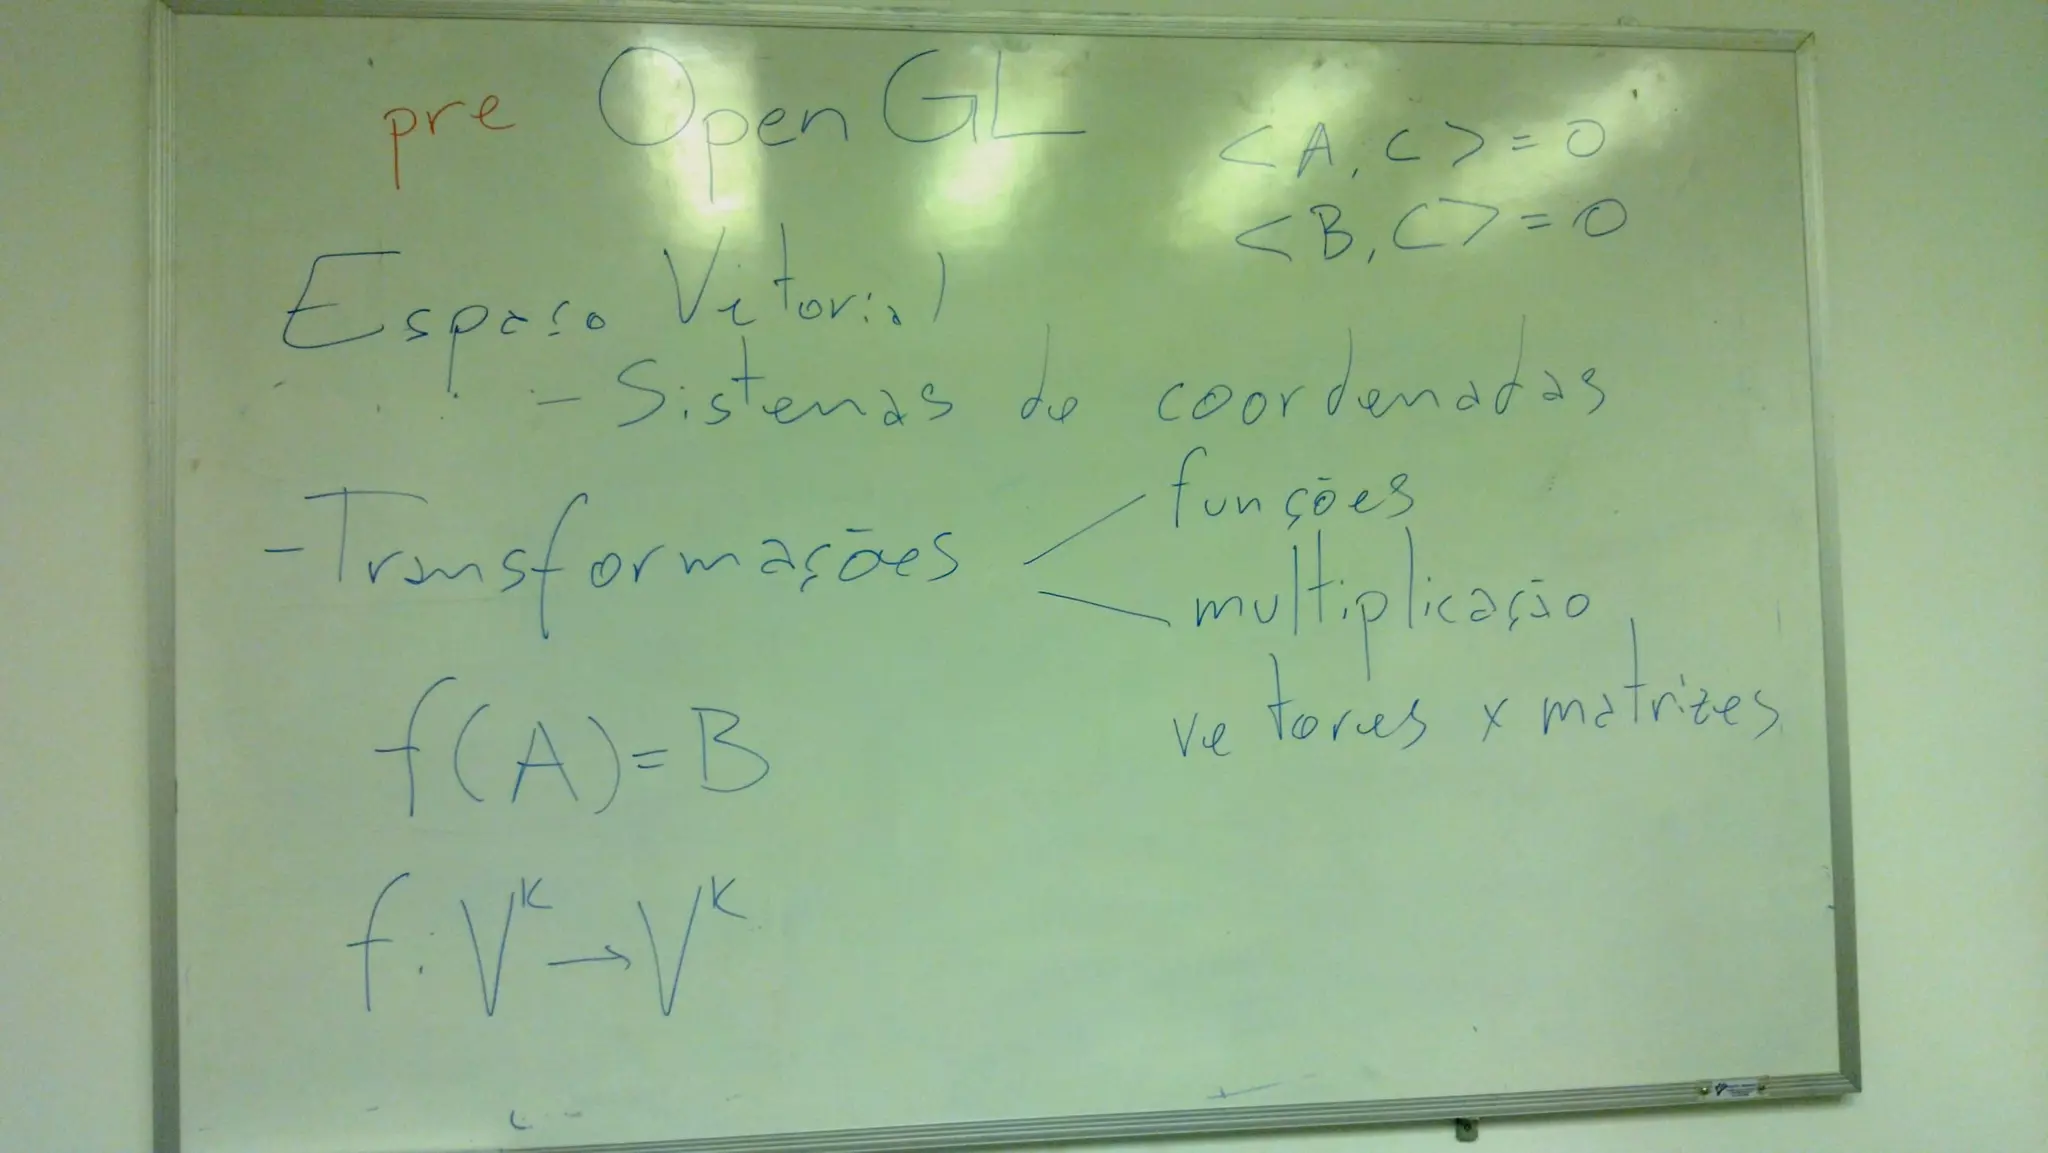 pre OpenGL
<A, C> = 0
<B, C> = 0
Espaço Vetorial
- Sistemas de coordenadas
- Transformações
funções
multiplicação
vetores x matrizes
f(A) = B
f: V^K → V^K